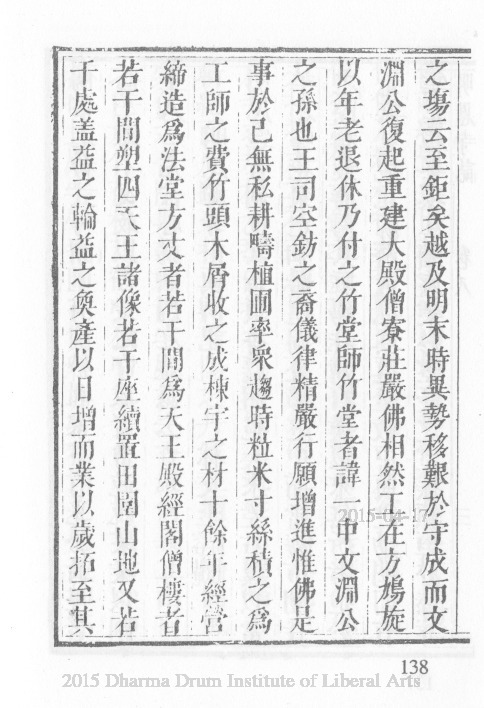 之塲云至鉅矣越及明末時異勢移艱於守成而文
淵公復起重建大殿僧寮莊嚴佛相然工在方鳩旋
以年老退休乃付之竹堂師竹堂者諱一中文淵公
之孫也王司空鈁之裔儀律精嚴行願增進惟佛是
事於己無私耕疇植圃率衆趨時粒米寸絲積之爲
工師之費竹頭木屑收之成棟宇之材十餘年經營
締造爲法堂方丈者若干間爲天王殿經閣僧樓者
若干間塑四天王諸像若干座續置田園山地又若
千處盖益之輪益之奐產以日增而業以歲拓至其
138
2015-04-17
2015 Dharma Drum Institute of Liberal Arts